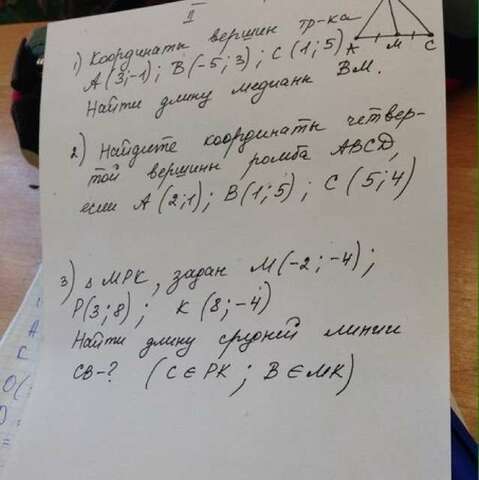 II
1) Координаты вершин тр-ка
A (3;-1); B(-5; 3); C (1; 5)
Найти длину медианы BM.
A M C
2) Найдите координаты четвер-
той вершины ромба ABCD,
если A (2;1); B(1; 5); C (5; 4)
3) △ MPK, задан M(-2; -4);
P(3; 8); K (8; -4)
Найти длину средней линии
CB-? (C∈PK; B∈MK)